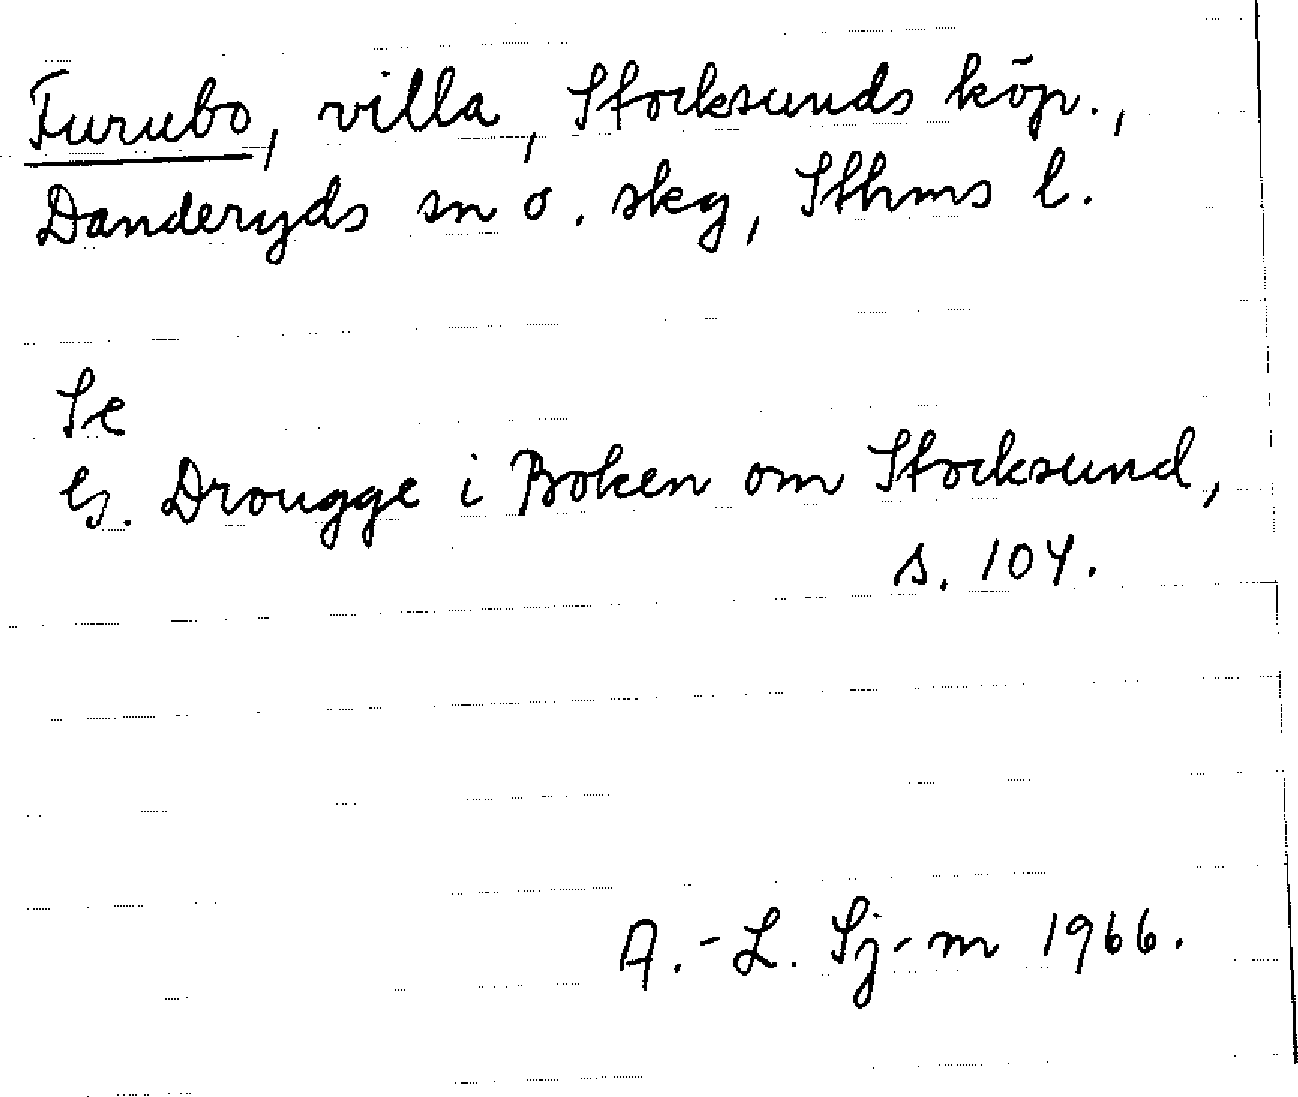 Furubo, villa, Stocksunds köp.,
Danderyds sn o. skg, Sthms l.
Se
G. Drougge i Boken om Stocksund,
s. 104.
A.-L. Sj-m 1966.